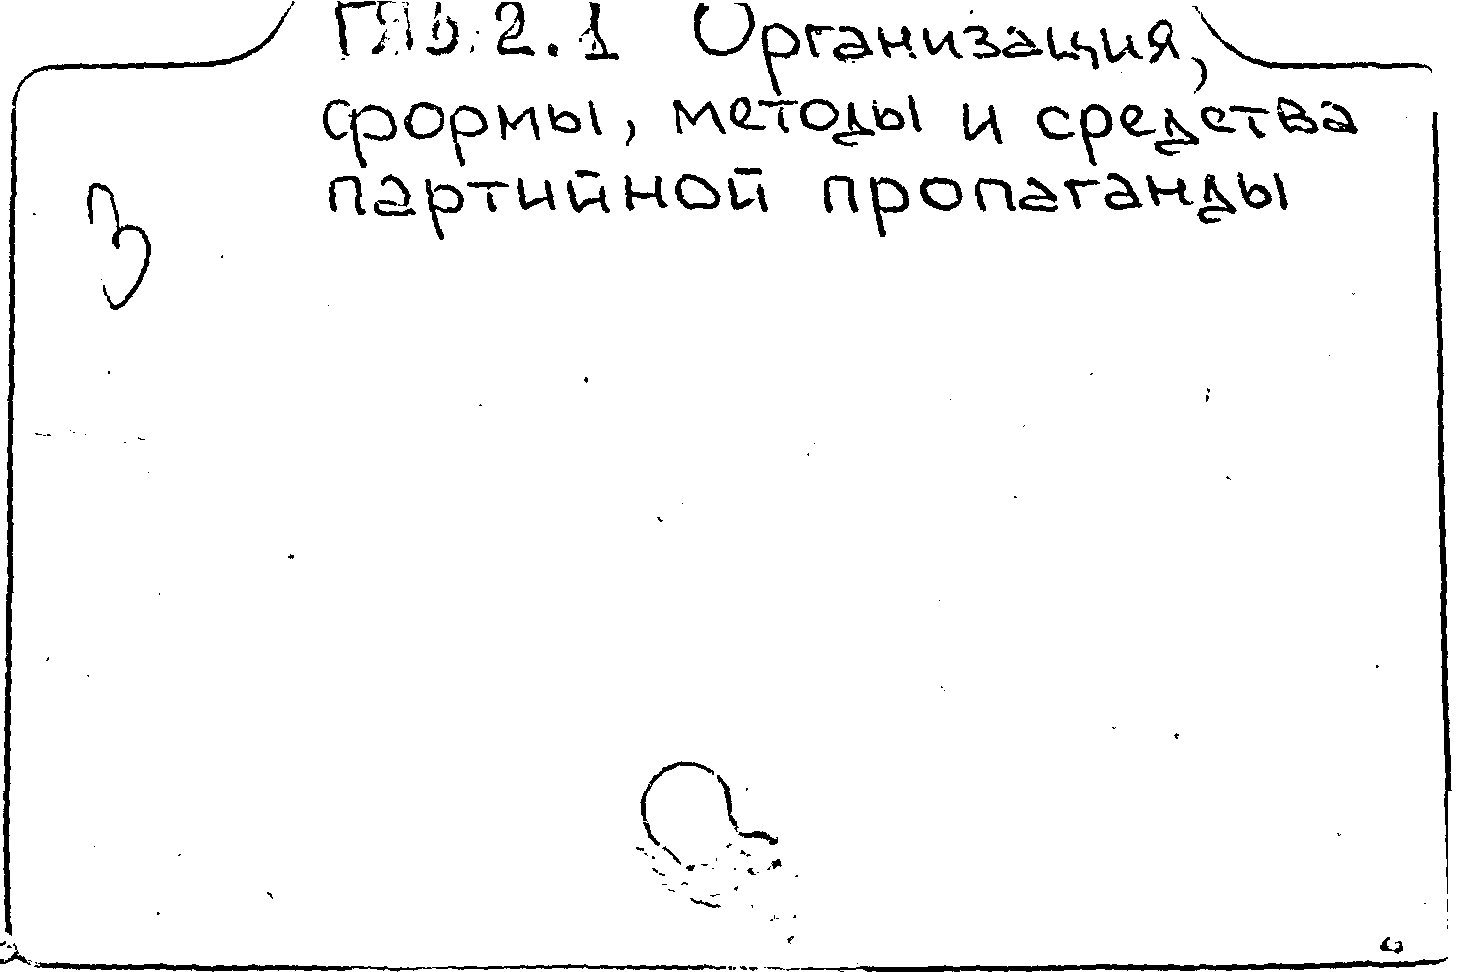 2.1 Организация,
формы, методы и средства
партийной пропаганды
3